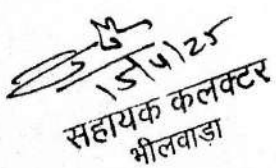 15/4/25
सहायक कलक्टर
भीलवाड़ा